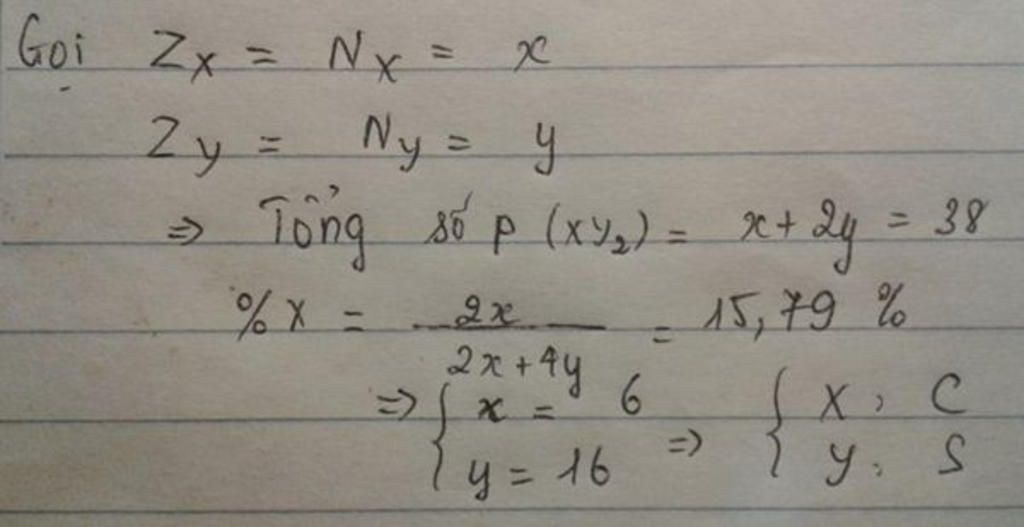 Gọi Zx = Nx = x
Zy = Ny = y
⇒ Tổng số p (xy₂) = x + 2y = 38
% X = 2x / 2x + 4y = 15,79 %
⇒ { x = 6 ⇒ { X : C
y = 16 y : S